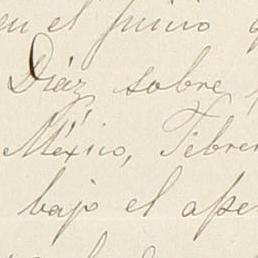 en el juicio
Díaz sobre
México, Febrer
bajo el ape